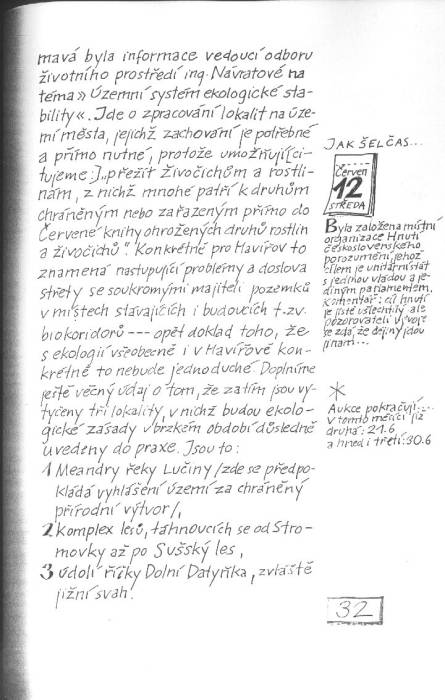 mavá byla informace vedoucí odboru
životního prostředí ing. Návratové na
téma » Územní systém ekologické sta-
bility «. Jde o zpracování lokalit na úze-
mí města, jejichž zachování je potřebné
a přímo nutné, protože umožňují [ci-
tujeme:] „přežít živočichům a rostli-
nám, z nichž mnohé patří k druhům
chráněným nebo zařazeným přímo do
Červené knihy ohrožených druhů rostlin
a živočichů". Konkrétně pro Havířov to
znamená nastupující problémy a doslova
střety se soukromými majiteli pozemků
v místech stávajících i budoucích t.zv.
biokoridorů --- opět doklad toho, že
s ekologií všeobecně i v Havířově kon-
krétně to nebude jednoduché. Doplníme
ještě věcný údaj o tom, že zatím jsou vy-
tyčeny tři lokality, v nichž budou ekolo-
gické zásady v brzkém období důsledně
uvedeny do praxe. Jsou to:
1 Meandry řeky Lučiny /zde se předpo-
kládá vyhlášení území za chráněný
přírodní výtvor/,
2 komplex lesů, táhnoucích se od Stro-
movky až po Sušský les,
3 údolí říčky Dolní Datyňka, zvláště
jižní svah.
JAK ŠEL ČAS...
Červen
12
STŘEDA
Byla založena místní
organizace Hnutí
československého
porozumění, jehož
cílem je unitární stát
s jedinou vládou a je-
diným parlamentem.
Komentář: cíl hnutí
je jistě ušlechtilý, ale
pozorovateli vývoje
se zdá, že dějiny jdou
jinam...
*
Aukce pokračují...
v tomto měsíci již
druhá: 21.6
a hned i třetí: 30.6
32